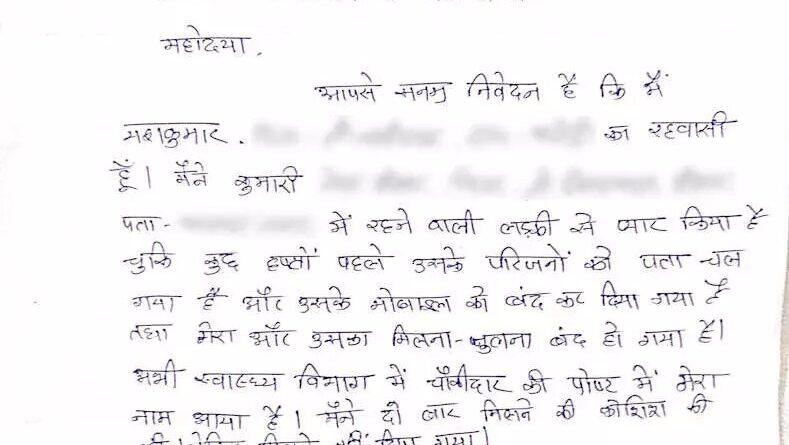 महोदया,
आपसे सनम्र निवेदन है कि मैं
का रहवासी
हूँ। मैंने कुमारी
पता- में रहने वाली लड़की से प्यार किया है
चुकि कुछ हफ्तों पहले उसके परिजनों को पता चल
गया है और उसके मोबाइल को बंद कर दिया गया है
तथा मेरा और उसका मिलना-जुलना बंद हो गया है।
अभी स्वास्थ्य विभाग में चौकीदार की पोस्ट में मेरा
नाम आया है। मैंने दो बार मिलने की कोशिश की
नहीं दिया गया।